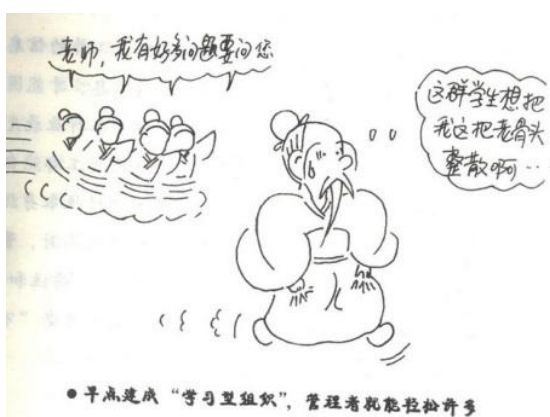 老师,我有好多问题要问您
这群学生想把
我这把老骨头
整散啊…
●早点建成“学习型组织”,管理者就能轻松许多